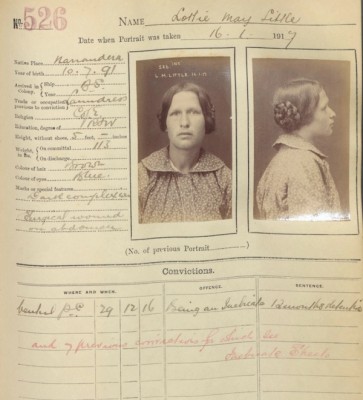 No. 526
NAME Lottie May Little
Date when Portrait was taken, 16-1-1917
Native Place Narrandera
Year of birth 10.7.91
Arrived in Colony Ship
Year
Trade or occupation previous to conviction Laundress
Religion C of E
Education, degree of
Height, without shoes 5 feet, — inches
Weight, in lbs. On committal 113
On discharge
Colour of hair Brown
Colour of eyes Blue
Marks or special features:—
Dark complexion
Surgical wound
on abdomen
526
L.M. LITTLE. 16-1-17
(No. of previous Portrait )
Convictions.
WHERE AND WHEN. OFFENCE. SENTENCE.
Central P.C. 29 12 16 Being an Inebriate 12 months detention
and 7 previous convictions